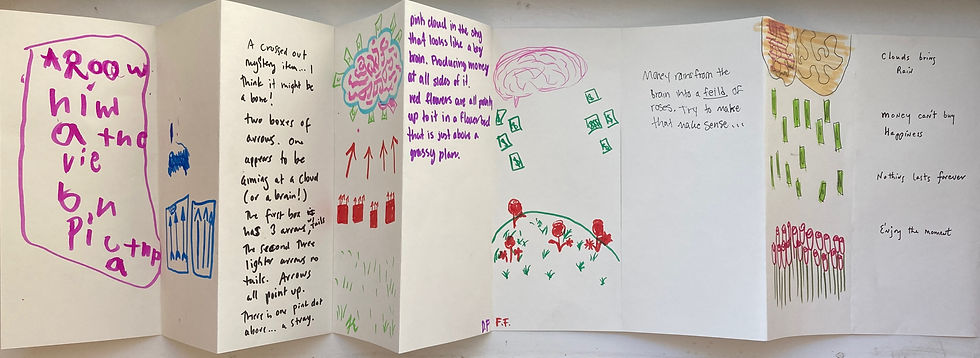 AROOW
him
a tnd
vie
bin
Pictnp
a
A crossed out
mystery item... I
think it might be
a bone!
two boxes of
arrows. One
appears to be
aiming at a cloud
(or a brain!)
The first box is
has 3 arrows, tails
The second three
lighter arrows no
tails. Arrows
all point up.
There is one pink dot
above... a stray.
pink cloud in the sky
that looks like a boy
brain. Producing money
at all sides of it.
red flowers are all point
up to it in a flower bed
that is just above a
grassy plain.
D.F
F.F.
Money rains from the
brain into a feild of
roses. Try to make
that make sense...
Clouds bring
Rain
money can't buy
Happiness
Nothing lasts forever
Enjoy the moment